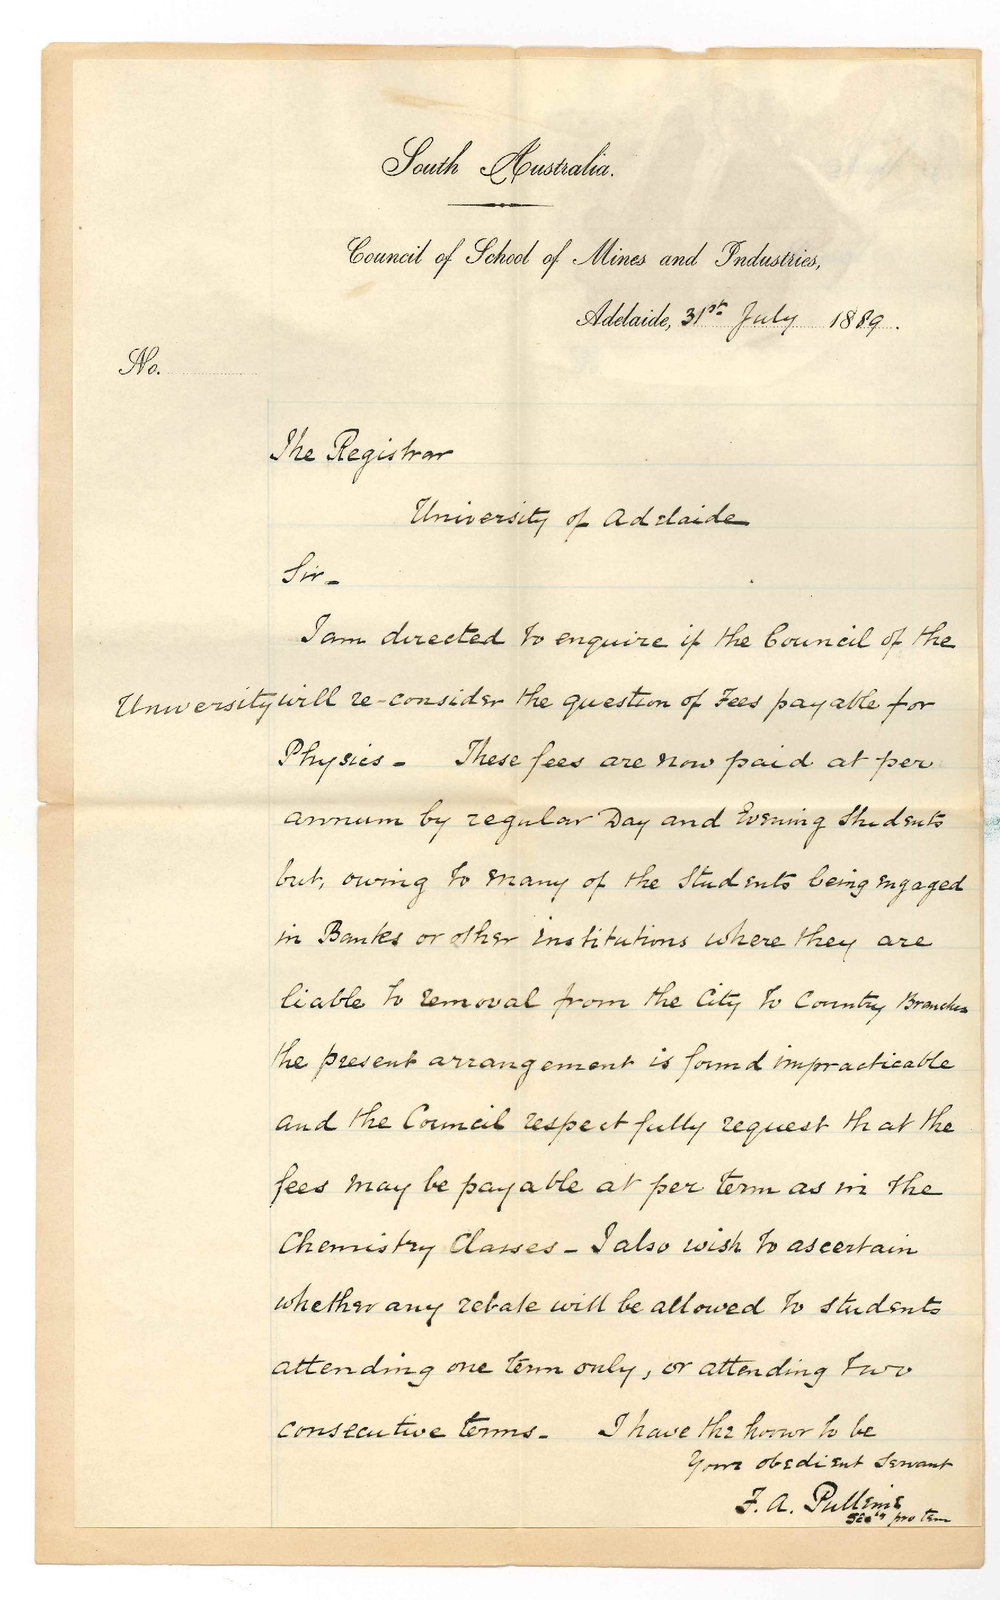 South Australia.
Council of School of Mines and Industries,
Adelaide, 31st July 1889.
No.
The Registrar
University of Adelaide
Sir -
I am directed to enquire if the Council of the
University will re-consider the question of Fees payable for
Physics - These fees are now paid at per
annum by regular Day and Evening Students
but, owing to many of the Students being engaged
in Banks or other institutions where they are
liable to removal from the City to Country Branches
the present arrangement is found impracticable
and the Council respectfully request that the
fees may be payable at per term as in the
Chemistry Classes - I also wish to ascertain
whether any rebate will be allowed to students
attending one term only, or attending two
consecutive terms - I have the honor to be
Your obedient Servant
F. A. Pulleine
Secty pro tem